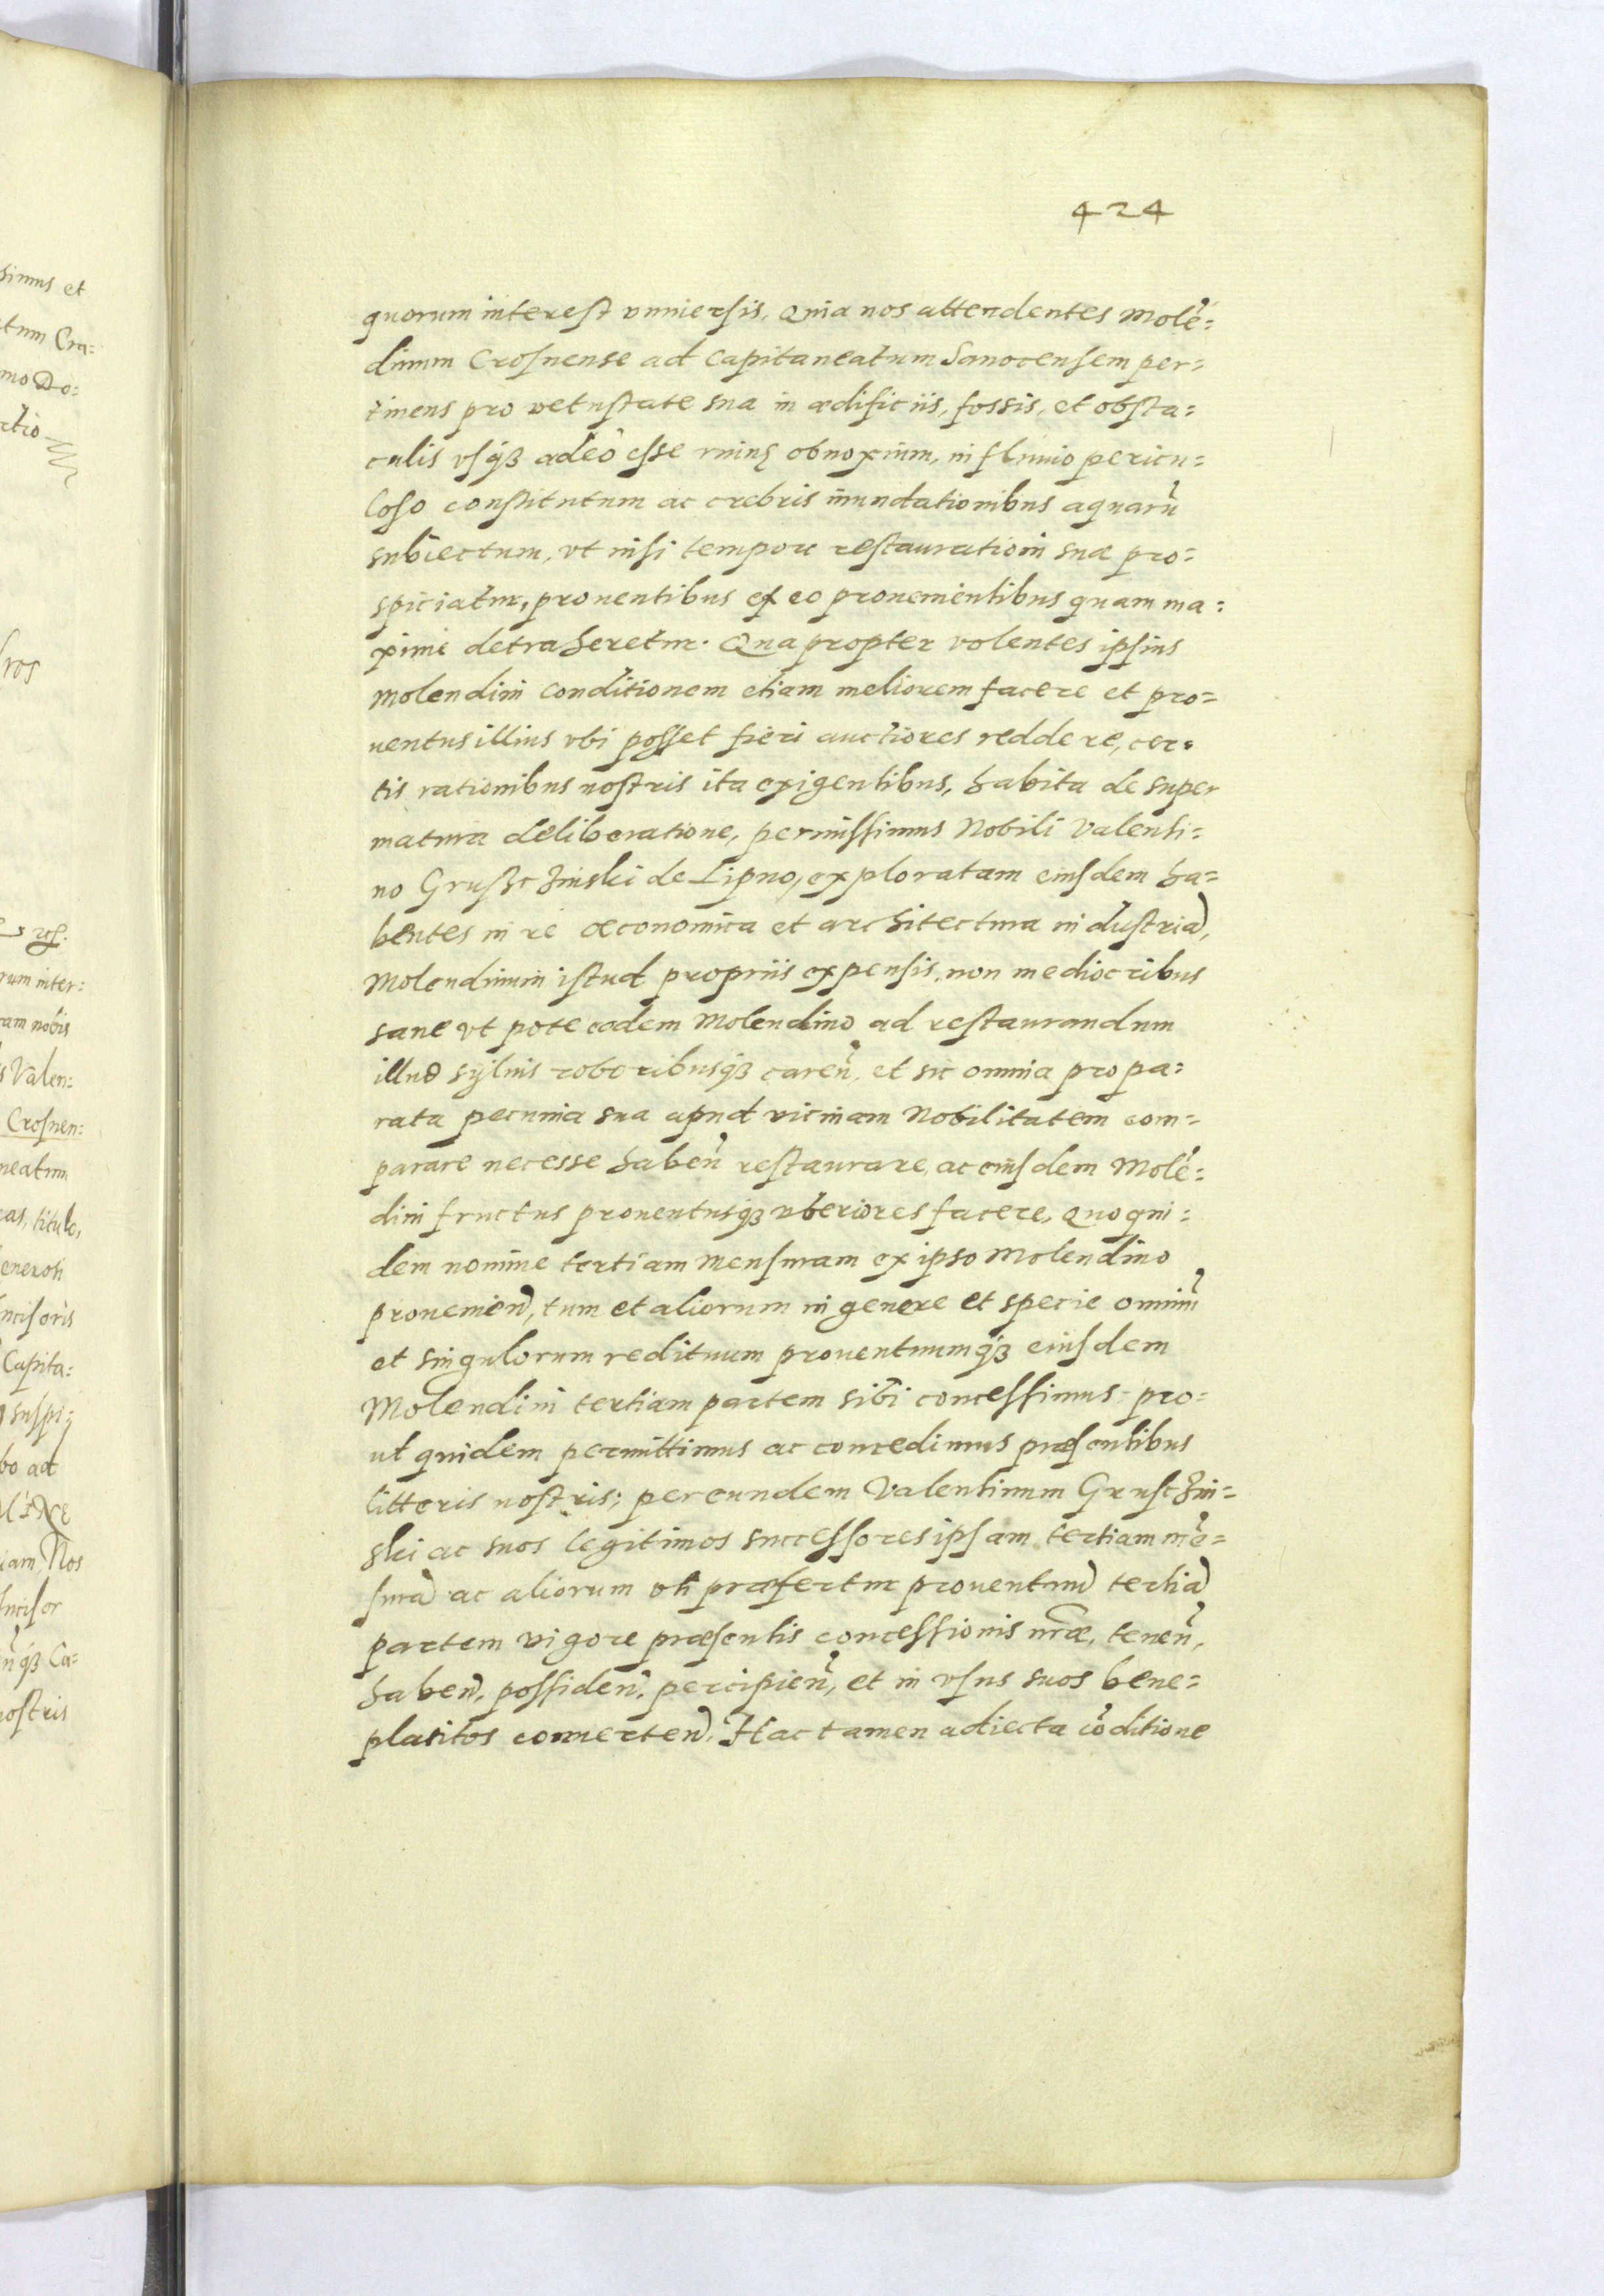 424
quorum interest vniuersis, Quia nos attendentes Molē=
dinum Crosnense ad Capitaneatum Sanocensem per=
tinens pro vetustate sua in ædificiis, fossis, et obsta=
culis vsq́ꝫ adeò esse ruinę obnoxium, in fluuio pericu=
loso constitutum ac crebris inundationibus aquarũ
subiectum, vt nisi tempore restaurationi suæ pro=
spiciatur, prouentibus ex eo prouenientibus quam ma=
ximè detraheretur. Quapropter volentes ipsius
Molendini conditionem etiam meliorem facere et pro=
uentus illius vbi posset fieri auctiores reddere, cer=
tis rationibus nostris ita exigentibus, habita desuper
matura deliberatione, permissimus Nobili Valenti=
no Grußczinski de Lipno, exploratam eiusdem ha=
bentes in re œconomica et architectura industriā,
Molendinum istud propriis expensis, non mediocribus
sane vt pote eodem Molendino ad restaurandum
illud syluis roboribusq́ꝫ careñ, et sic omnia pro pa=
rata pecunia sua apud vicinam Nobilitatem com=
parare necesse habeñ restaurare, ac eiusdem Molē=
dini fructus prouentusq́ꝫ vberiores facere, Quo qui=
dem nomine tertiam mensuram ex ipso Molendino
prouenieñ, tum et aliorum in genere et specie omniũ
et singulorum redituum prouentuumq́ꝫ eiusdem
Molendini tertiam partem sibi concessimus pro=
ut quidem permittimus ac concedimus præsentibus
litteris nostris; per eundem Valentinum Grusczin=
ski ac suos legitimos successores ipsam tertiam mē=
surā ac aliorum vti præfertur prouentuũ tertiā
partem vigore præsentis concessionis nr̃æ, teneñ,
habeñ, possideñ, percipieñ, et in vsus suos bene=
placitos conuerteñ. Hac tamen adiecta cõditione
simus et
tum Cra=
mo Do=
ctio
rum inter=
ram nobis
s Valen=
Crosnen=
neatum
as, titulo,
enerosi
ncisoris
Capita=
suspi=
bo ad
iam, Nos
Incisor
nostris